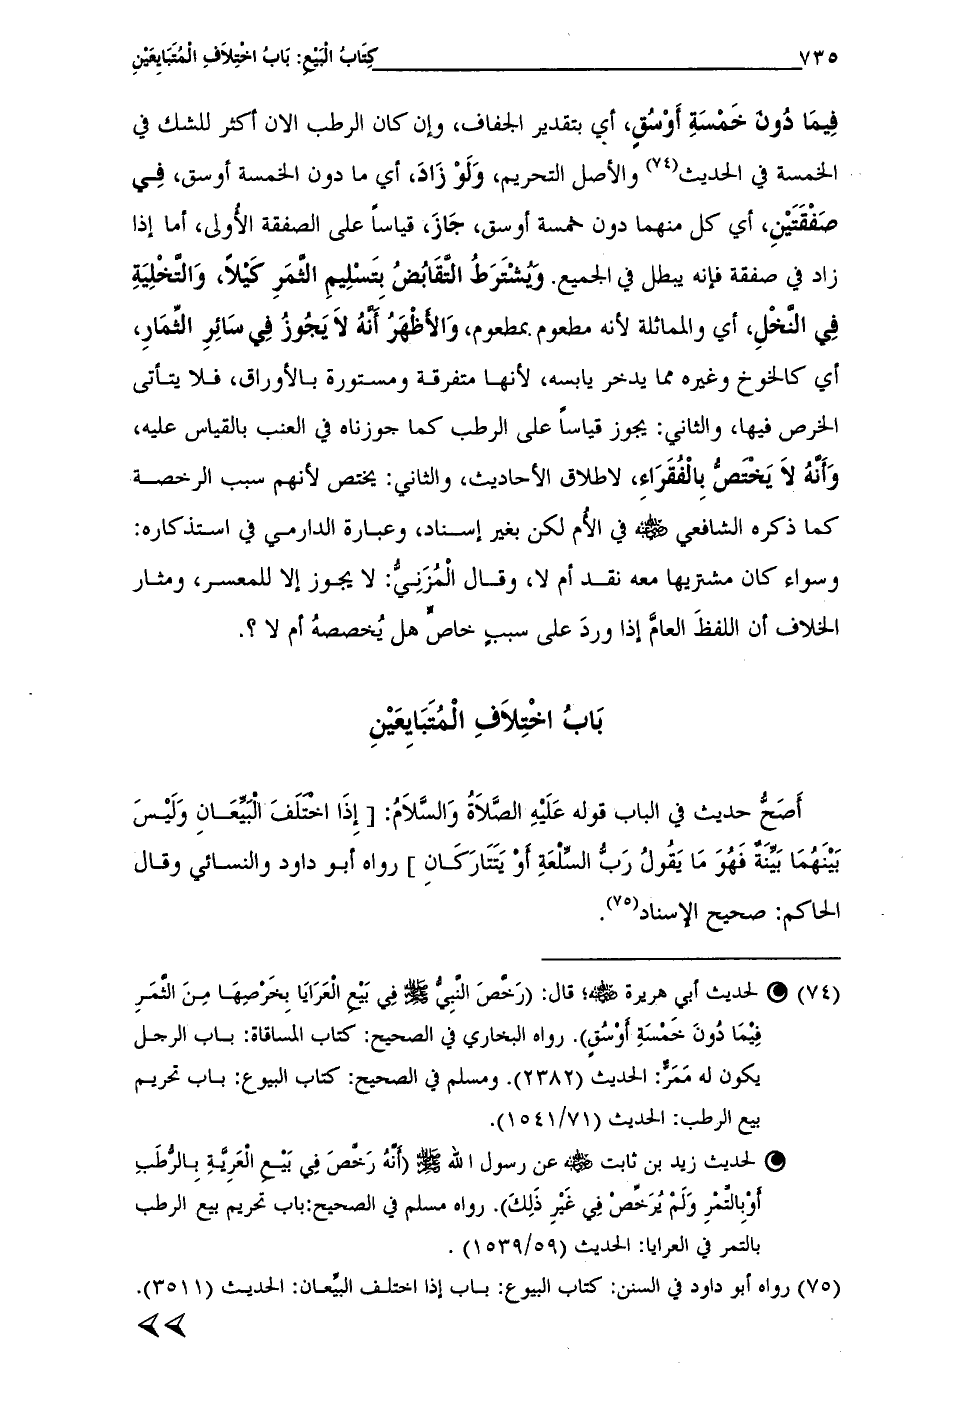 ٧٣٥ كِتَابُ الْبَيْعِ: بَابُ اخْتِلاَفِ الْمُتَبَايِعَيْنِ
فِيمَا دُونَ خَمْسَةِ أَوْسُقٍ، أي بتقدير الجفاف، وإن كان الرطب الان أكثر للشك في
الخمسة في الحديث(٧٤) والأصل التحريم، وَلَوْ زَادَ، أي ما دون الخمسة أوسق، فِي
صَفْقَتَيْنِ، أي كل منهما دون خمسة أوسق، جَازَ، قياساً على الصفقة الأُولى، أما إذا
زاد في صفقة فإنه يبطل في الجميع. وَيُشْتَرَطُ التَّقَابُضُ بِتَسْلِيمِ الثَّمَرِ كَيْلاً، وَالتَّخْلِيَةِ
فِي النَّخْلِ، أي والمماثلة لأنه مطعوم بمطعوم، وَالأَظْهَرُ أَنَّهُ لاَ يَجُوزُ فِي سَائِرِ الثِّمَارِ،
أي كالخوخ وغيره مما يدخر يابسه، لأنها متفرقة ومستورة بالأوراق، فلا يتأتى
الخرص فيها، والثاني: يجوز قياساً على الرطب كما جوزناه في العنب بالقياس عليه،
وَأَنَّهُ لاَ يَخْتَصُّ بِالْفُقَرَاءِ، لاطلاق الأحاديث، والثاني: يختص لأنهم سبب الرخصة
كما ذكره الشافعي ﷺ في الأُم لكن بغير إسناد، وعبارة الدارمي في استذكاره:
وسواء كان مشتريها معه نقد أم لا، وقال الْمُزَنِيُّ: لا يجوز إلا للمعسر، ومثار
الخلاف أن اللفظَ العامَّ إذا وردَ على سببٍ خاصٍّ هل يُخصصهُ أم لا ؟.
بَابُ اخْتِلاَفِ الْمُتَبَايِعَيْنِ
أَصَحُّ حديث في الباب قوله عَلَيْهِ الصَّلاَةُ وَالسَّلاَمُ: [ إِذَا اخْتَلَفَ الْبَيِّعَانِ وَلَيْسَ
بَيْنَهُمَا بَيِّنَةٌ فَهُوَ مَا يَقُولُ رَبُّ السِّلْعَةِ أَوْ يَتَتَارَكَانِ ] رواه أبو داود والنسائي وقال
الحاكم: صحيح الإسناد(٧٥).
(٧٤) لحديث أبي هريرة ﷺ؛ قال: (رَخَّصَ النَّبِيُّ ﷺ فِي بَيْعِ الْعَرَايَا بِخَرْصِهَا مِنَ الثَّمَرِ
فِيْمَا دُونَ خَمْسَةِ أَوْسُقٍ). رواه البخاري في الصحيح: كتاب المساقاة: باب الرجل
يكون له مَمَرٌّ: الحديث (٢٣٨٢). ومسلم في الصحيح: كتاب البيوع: باب تحريم
بيع الرطب: الحديث (١٥٤١/٧١).
لحديث زيد بن ثابت ﷺ عن رسول الله ﷺ (أَنَّهُ رَخَّصَ فِي بَيْعِ الْعَرِيَّةِ بِالرُّطَبِ
أَوْبِالتَّمْرِ وَلَمْ يُرَخِّصْ فِي غَيْرِ ذَلِكَ). رواه مسلم في الصحيح:باب تحريم بيع الرطب
بالتمر في العرايا: الحديث (١٥٣٩/٥٩) .
(٧٥) رواه أبو داود في السنن: كتاب البيوع: باب إذا اختلف البيِّعان: الحديث (٣٥١١).